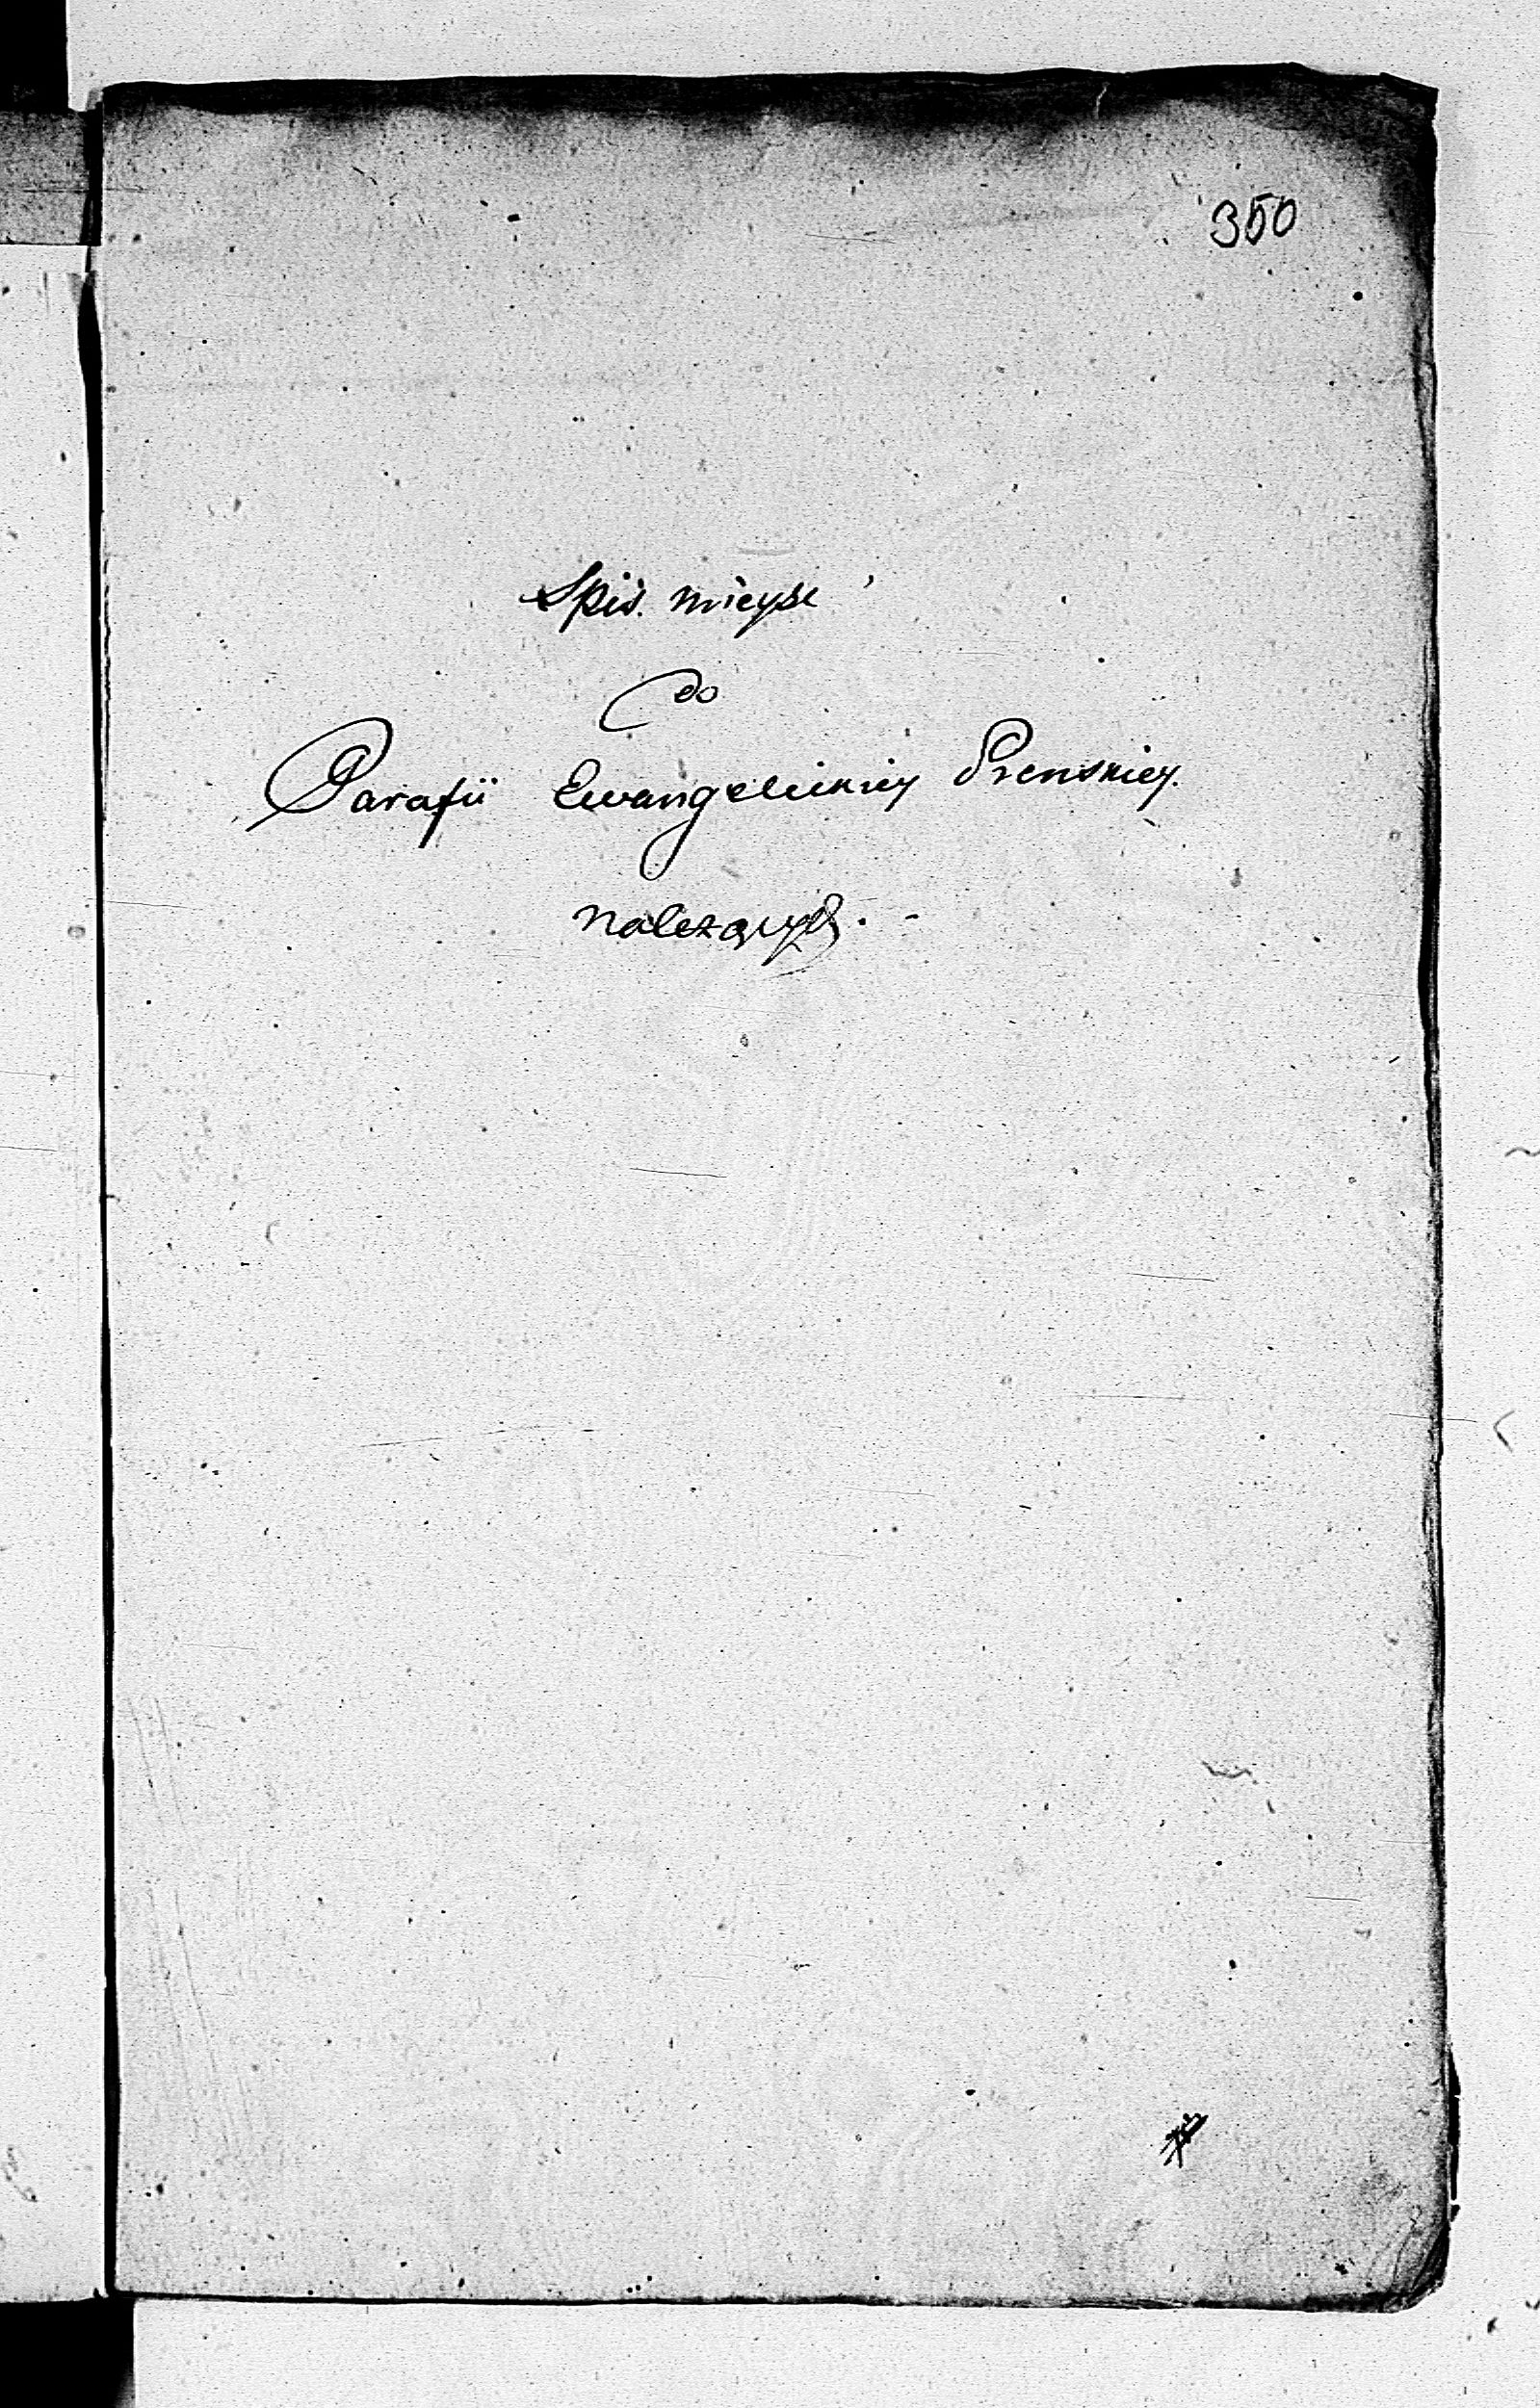 350
Spis mieysc
do
Parafii Ewangelickiey Prenskiey.
należących. -